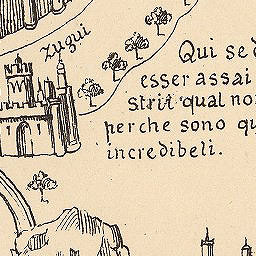 Zugui
Qui se d
esser assai
strit qual no
perche sono qu
incredibeli.